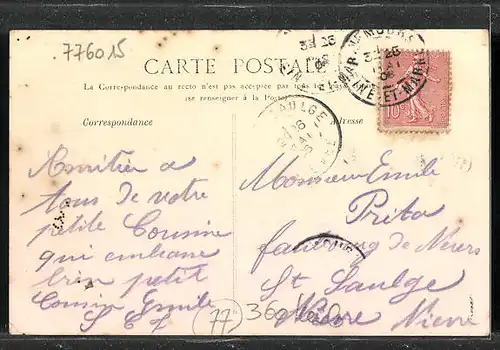 776015
CARTE POSTALE
La Correspondance au recto n'est pas acceptée par tous
se renseigner à la Poste
Correspondance
Adresse
NEMOURS
SEINE-ET-MARNE
10
Amitiés a
tous de votre
petite Cousine
qui embrasse
bien petit
Cousin Emile
Monsieur Emile
faubourg de Nevers
St Saulge
Nièvre Nievre
77